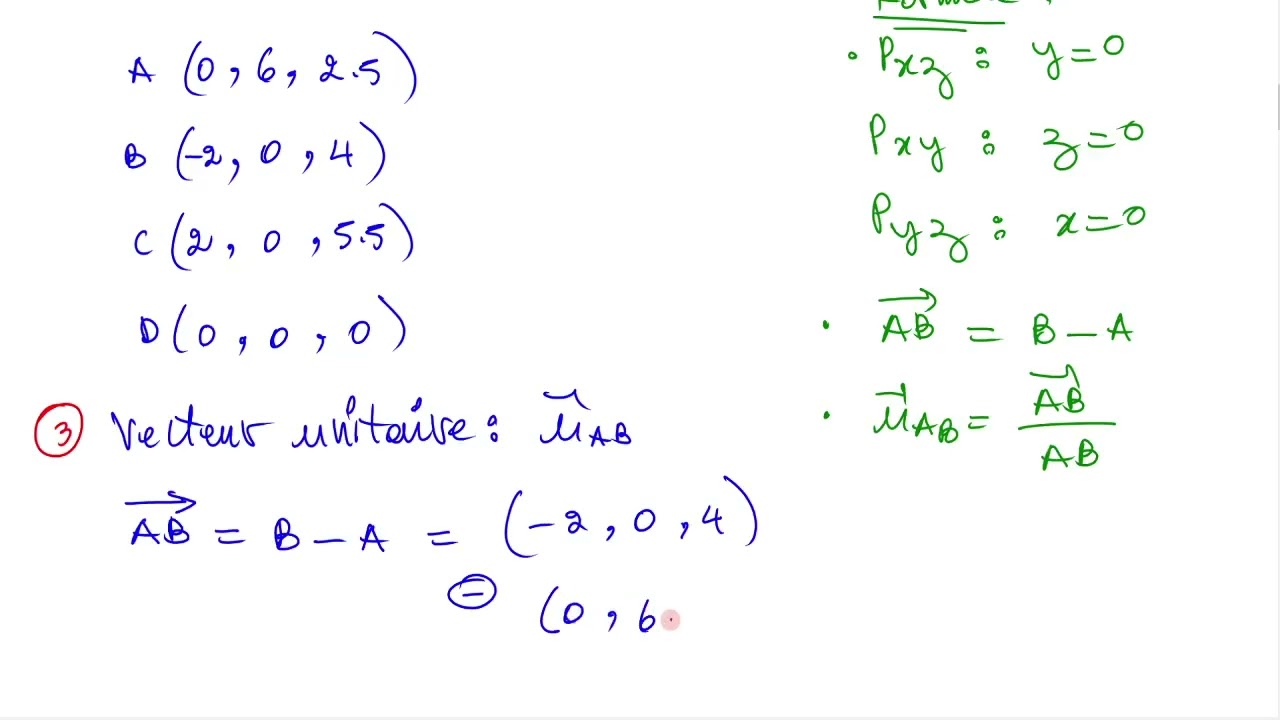 A (0, 6, 2.5)
B (-2, 0, 4)
C (2, 0, 5.5)
D (0, 0, 0)
③ Vecteur unitaire : μ⃗AB
AB⃗ = B - A = (-2, 0, 4)
⊖ (0, 6
• Pxz : y = 0
Pxy : z = 0
Pyz : x = 0
• AB⃗ = B - A
• μ⃗AB = AB⃗ / AB